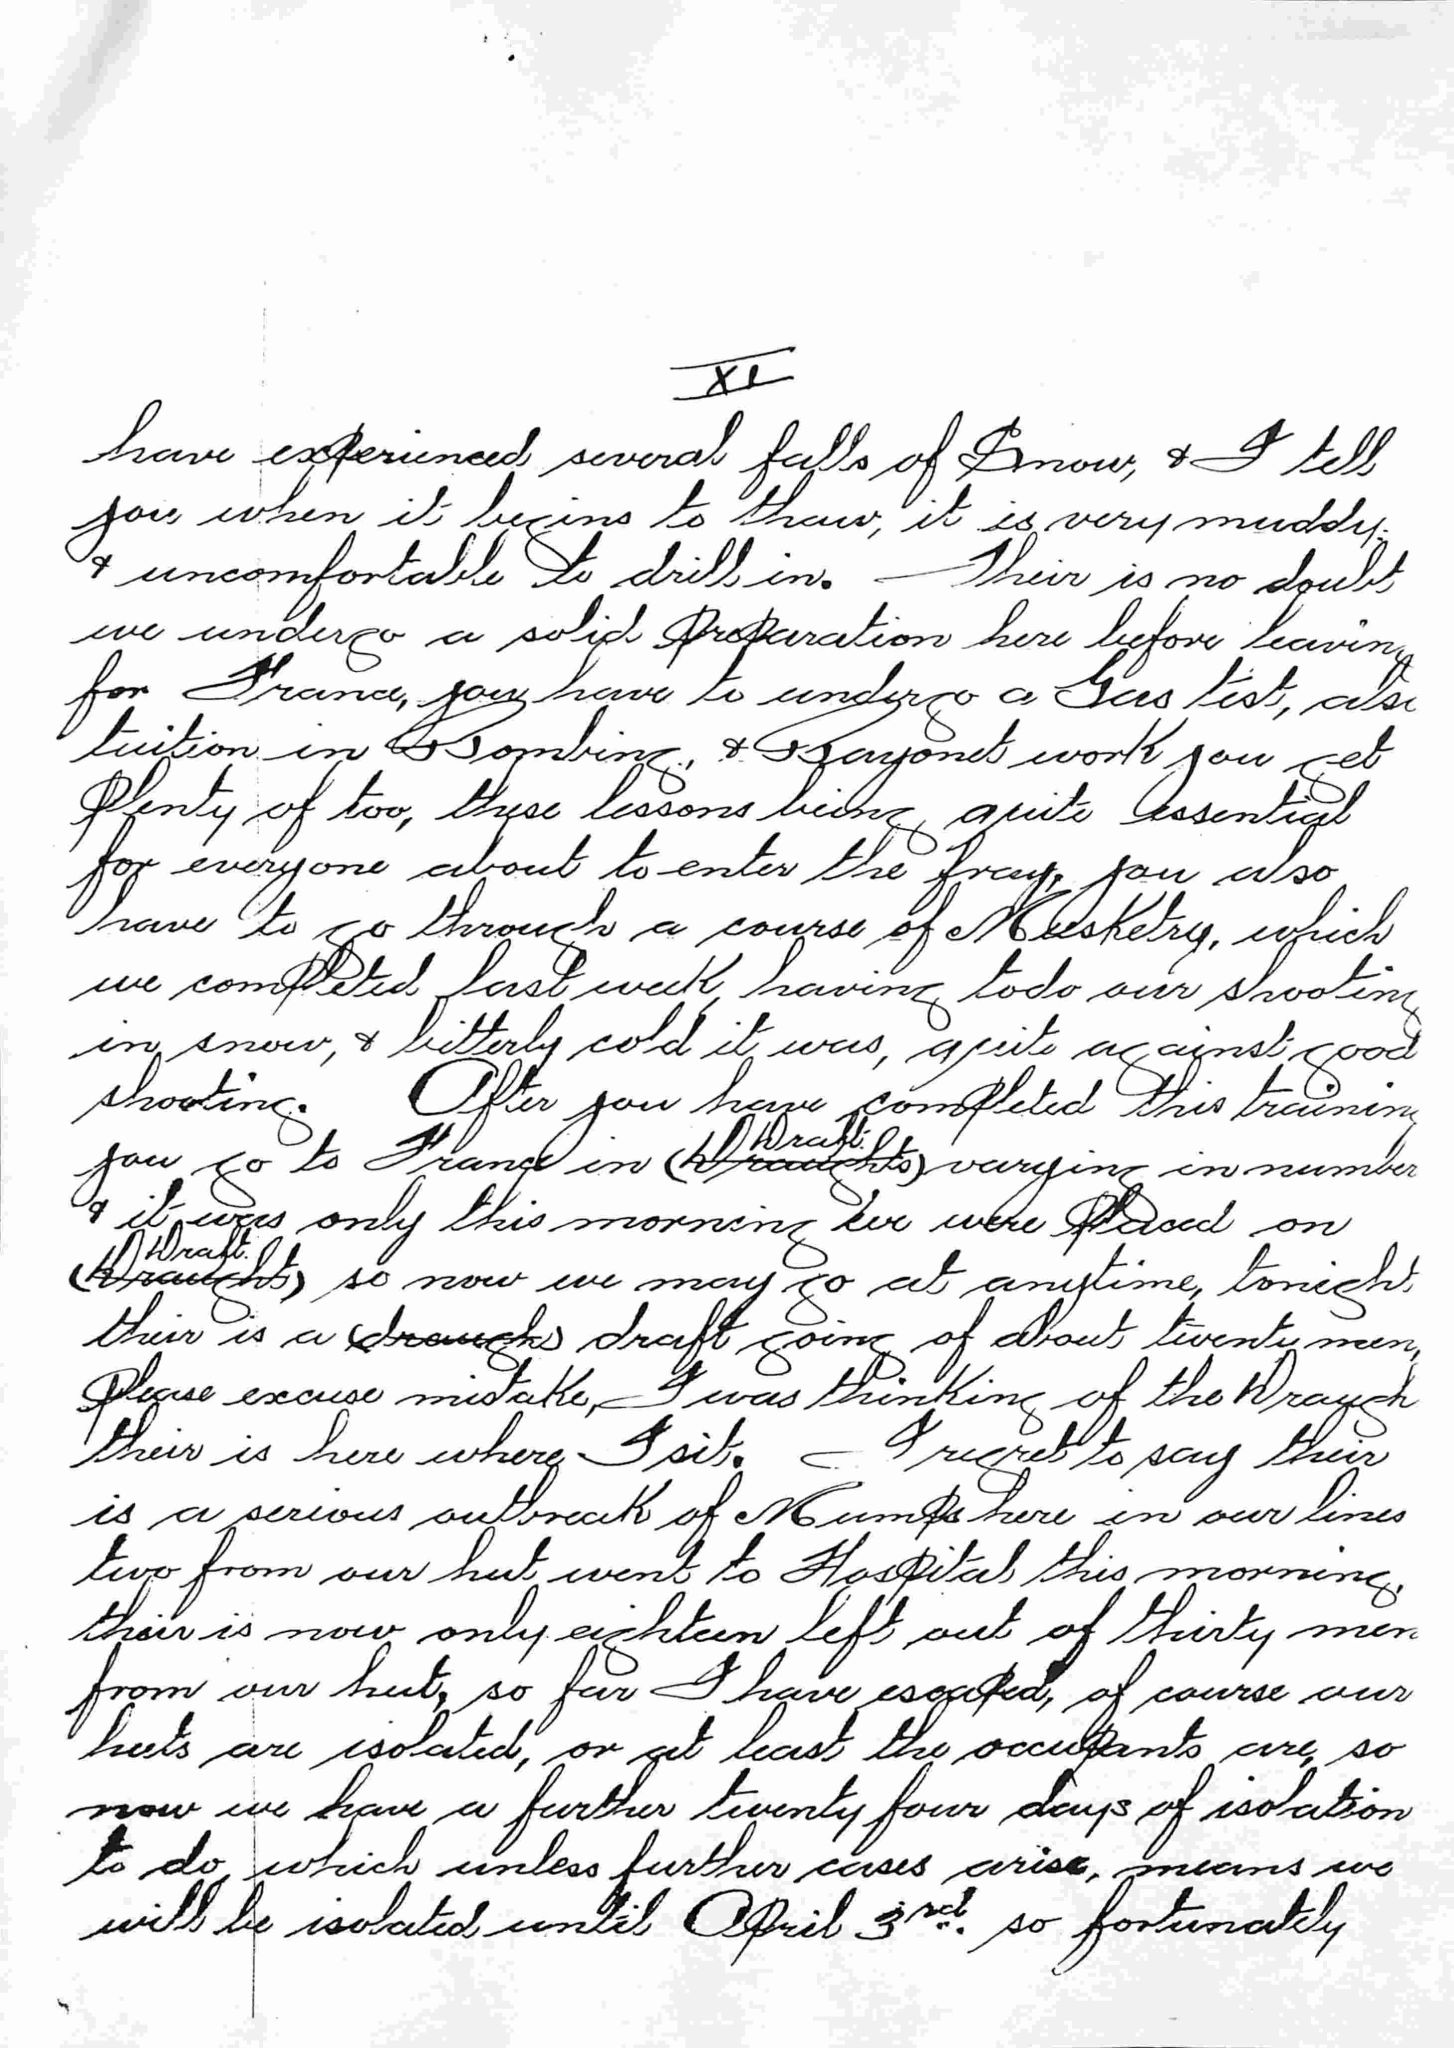 XI
have experienced several falls of Snow, & I tell
you when it begins to thaw, it is very muddy.
& uncomfortable to drill in. — Their is no doubt
we undergo a solid Preparation here before leaving
for France, you have to undergo a Gas test, also
tuition in Bombing, & Bayonet work you get
Plenty of too, these lessons being quite essential
for everyone about to enter the fray, you also
have to go through a course of Musketry, which
we completed last week, having to do our shooting
in snow, & bitterly cold it was, quite against good
shooting. After you have completed this training
you go to France in (Draughts) Draft. varying in number
& it was only this morning we were Placed on
(Draught) Draft. so now we may go at anytime, tonight
their is a (draugh) draft going of about twenty men,
Please excuse mistake, I was thinking of the Draugh
their is here where I sit. — I regret to say their
is a serious outbreak of Mumps here in our lines
two from our hut went to Hospital this morning,
their is now only eighteen left out of thirty men
from our hut, so far I have escaped, of course our
huts are isolated, or at least the occupants are, so
now we have a further twenty four days of isolation
to do, which unless further cases arise, means we
will be isolated until April 3rd. so fortunately